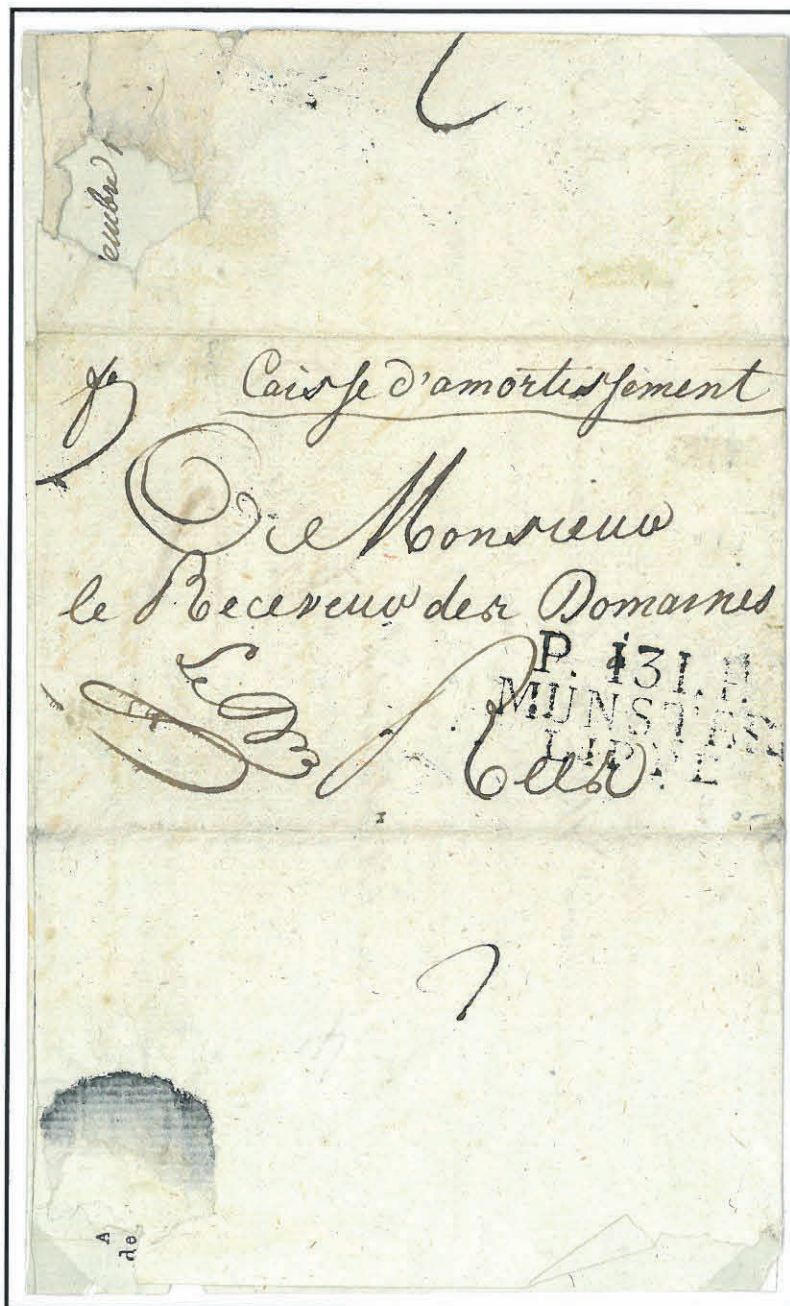 embre
fo
Caisse d'amortissement
Monsieur
le Receveur des Domaines
P. 131. P.
MUNSTER
LIPPE
A
de